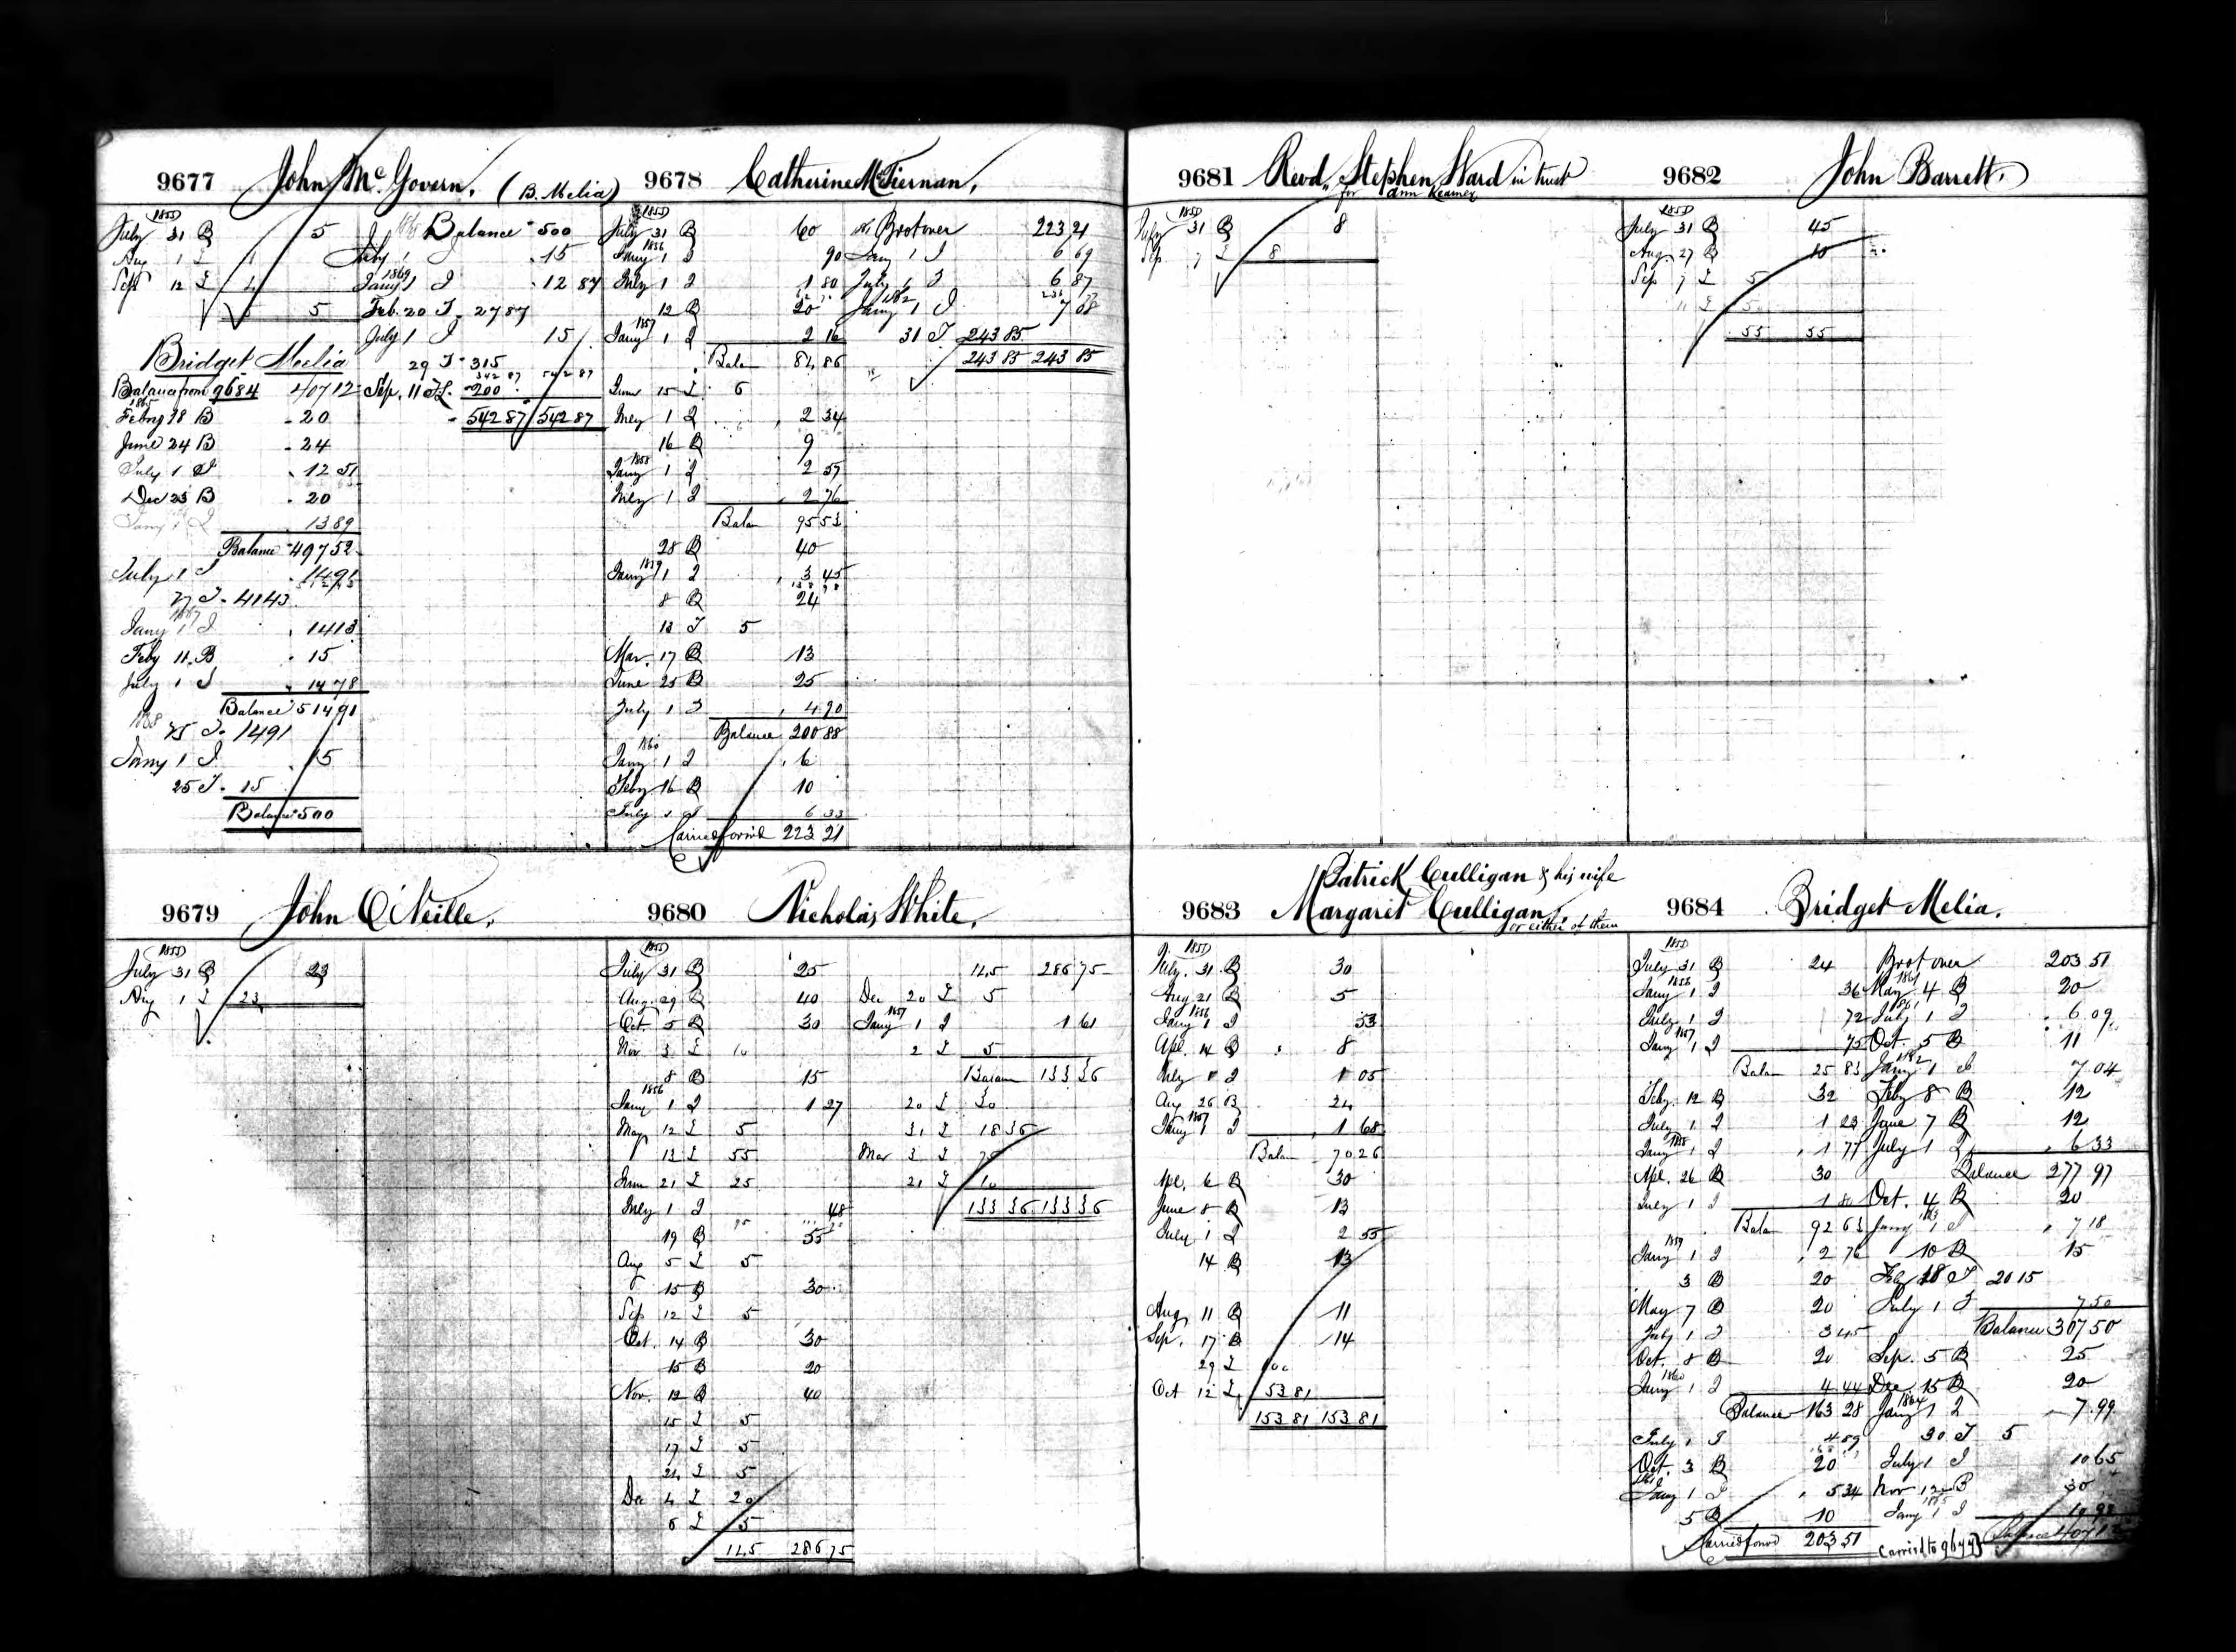 9677 John McGovern. (B. Melia)
1855
July 31 B 5
Aug 1 L 1
Sept 12 L 4
5 5
Bridget Melia
Balance from 9684 407 12
1865
Feby 18 B 20
June 24 B 24
July 1 I 12 51
Dec 23 B 20
Jany 1 I 13 89
Balance 497 52
July 1 I 14 91
27 I 41 43
1867
Jany 1 I 14 13
Feby 11 B 15
July 1 I 14 78
Balance 514 91
1868
25 I 14 91
Jany 1 I 15
25 I 15
Balance 500
1868 Balance 500
July 1 I 15
1869
Jany 1 I 12 87
Feb. 20 I 27 87
July 1 I 15
29 I 315
342 87 542 87
Sep. 11 L 200
542 87 542 87
9678 Catherine McTiernan.
1855
July 31 B 60
1856
Jany 1 I 90
July 1 I 1 80
12 B 20
1857
Jany 1 I 2 16
Balan 84,86
June 15 L 6
July 1 I 2 34
16 B 9
1858
Jany 1 I 2 57
July 1 I 2 76
Balan 95 53
28 B 40
1859
Jany 1 I 3 45
8 B 24
13 I 5
Mar. 17 B 13
June 25 B 25
July 1 I 4 90
Balance 200 88
1860
Jany 1 I 6
Feby 16 B 10
July 1 I 6 33
Carried forwd 223 21
Brot over 223 21
Jany 1 I 6 69
July 1 I 6 87
Jany 1 I 7 08
31 I 243 85
243 85 243 85
9679 John O'Neille.
1855
July 31 B 23
Aug 1 L 23
9680 Nicholas White.
1855
July 31 B 25
Aug. 29 B 40
Oct. 5 B 30
Nov. 3 L 10
8 B 15
1856
Jany 1 I 1 27
May 12 L 5
13 L 55
June 21 L 25
July 1 I 48
19 B 55
Aug 5 L 5
15 B 30
Sep 12 L 5
Oct. 14 B 30
15 B 20
Nov. 12 B 40
15 L 5
17 L 5
24 L 5
Dec 4 L 20
6 L 5
145 286 75
145 286 75
Dec 20 L 5
1857
Jany 1 I 1 61
2 L 5
Balan 133 36
20 L 30
31 L 18 36
Mar 3 L 75
21 L 10
133 36 133 36
9681 Revd. Stephen Ward in trust
for Ann Kearney
1855
July 31 B 8
Sep 7 L 8
9682 John Barrett.
1855
July 31 B 45
Aug. 27 B 10
Sep 7 L 5
55 55
Patrick Culligan & his wife
9683 Margaret Culligan
or either of them
1855
July. 31 B 30
Aug 21 B 5
1856
Jany 1 I 53
Apl. 14 B 8
July 1 I 1 05
Aug 26 B 24
1857
Jany 1 I 1 68
Balan 70 26
Apl. 6 B 30
June 8 B 13
July 1 I 2 55
14 B 13
Aug. 11 B 11
Sep. 17 B 14
29 L 100
Oct 12 L 53 81
153 81 153 81
9684 Bridget Melia.
1855
July 31 B 24
1856
Jany 1 I 36
July 1 I 72
1857
Jany 1 I 75
Balan 25 83
Feby. 12 B 32
July 1 I 1 23
1858
Jany 1 I 1 77
Apl. 26 B 30
July 1 I 1 80
Balan 92 63
1859
Jany 1 I 2 76
3 B 20
May 7 B 20
July 1 I 3 45
Oct. 8 B 20
1860
Jany 1 I 4 44
Balance 163 28
July 1 I 4 89
Oct. 3 B 20
1861
Jany 1 I 5 34
5 B 10
Carried forwd 203 51
Brot over 203 51
1861
May 4 B 20
July 1 I 6.09
Oct. 5 B 11
1862
Jany 1 I 7.04
Feby 8 B 12
June 7 B 12
July 1 I 6 33
Balance 277 97
Oct. 4 B 20
1863
Jany 1 I 7 18
10 B 15
Feby 28 I 20 15
July 1 I 7 50
Balance 307 50
Sep. 5 B 25
Dec. 15 B 20
1864
Jany 1 I 7.99
30 I 5
July 1 I 10 65
Nov 12 B 30
1865
Jany 1 I 10 98
Balance 407 12
Carried to 9677